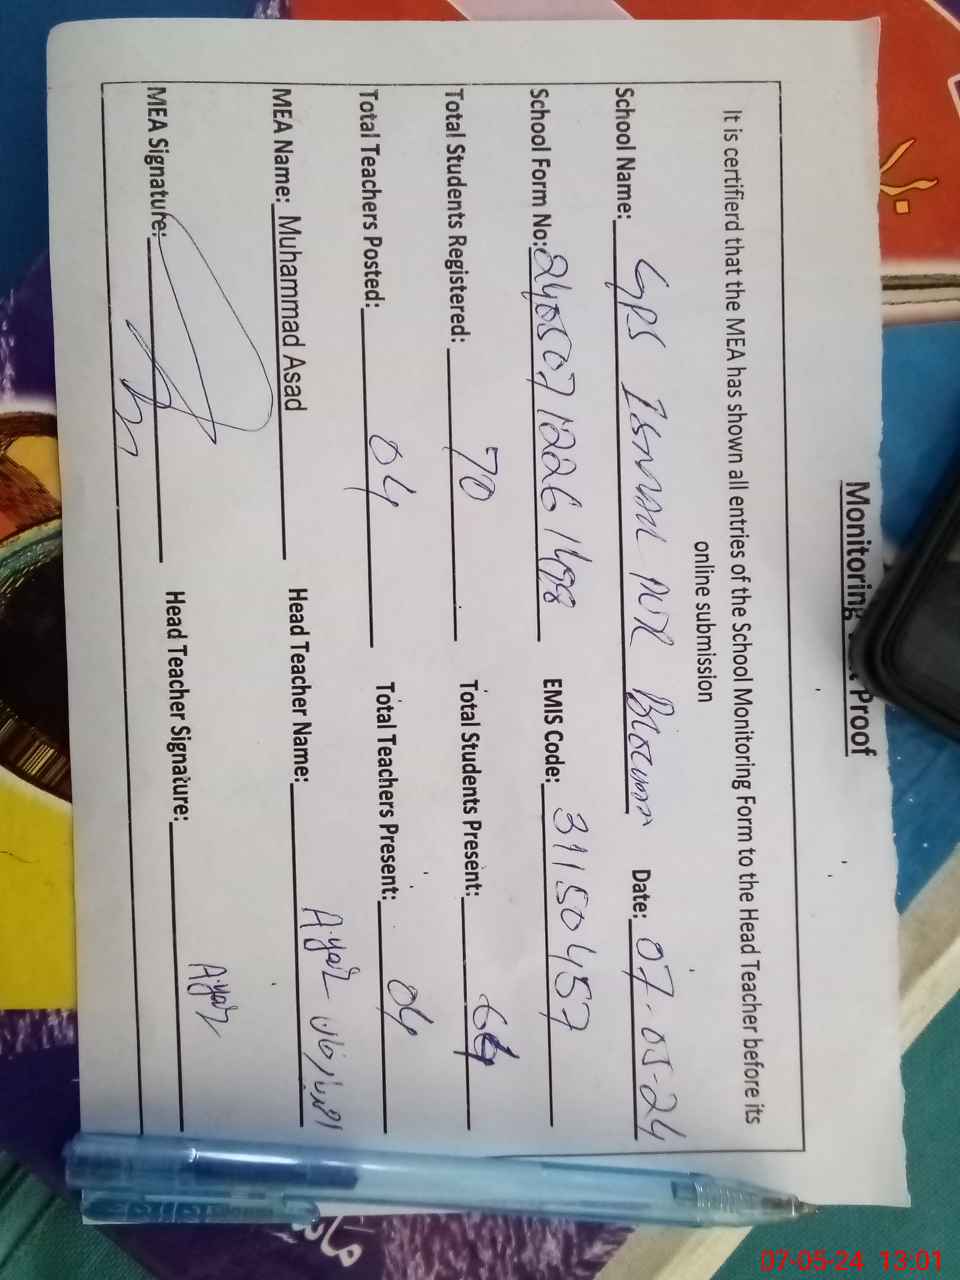 Monitoring Proof
It is certifierd that the MEA has shown all entries of the School Monitoring Form to the Head Teacher before its
online submission
School Name: GPS Date: 07-05-24
School Form No: 24050712261498 EMIS Code: 31150457
Total Students Registered: 70 Total Students Present: 64
Total Teachers Posted: 04 Total Teachers Present: 04
MEA Name: Muhammad Asad Head Teacher Name: A.yar
MEA Signature: Head Teacher Signature: A.yar
07-05-24 13:01